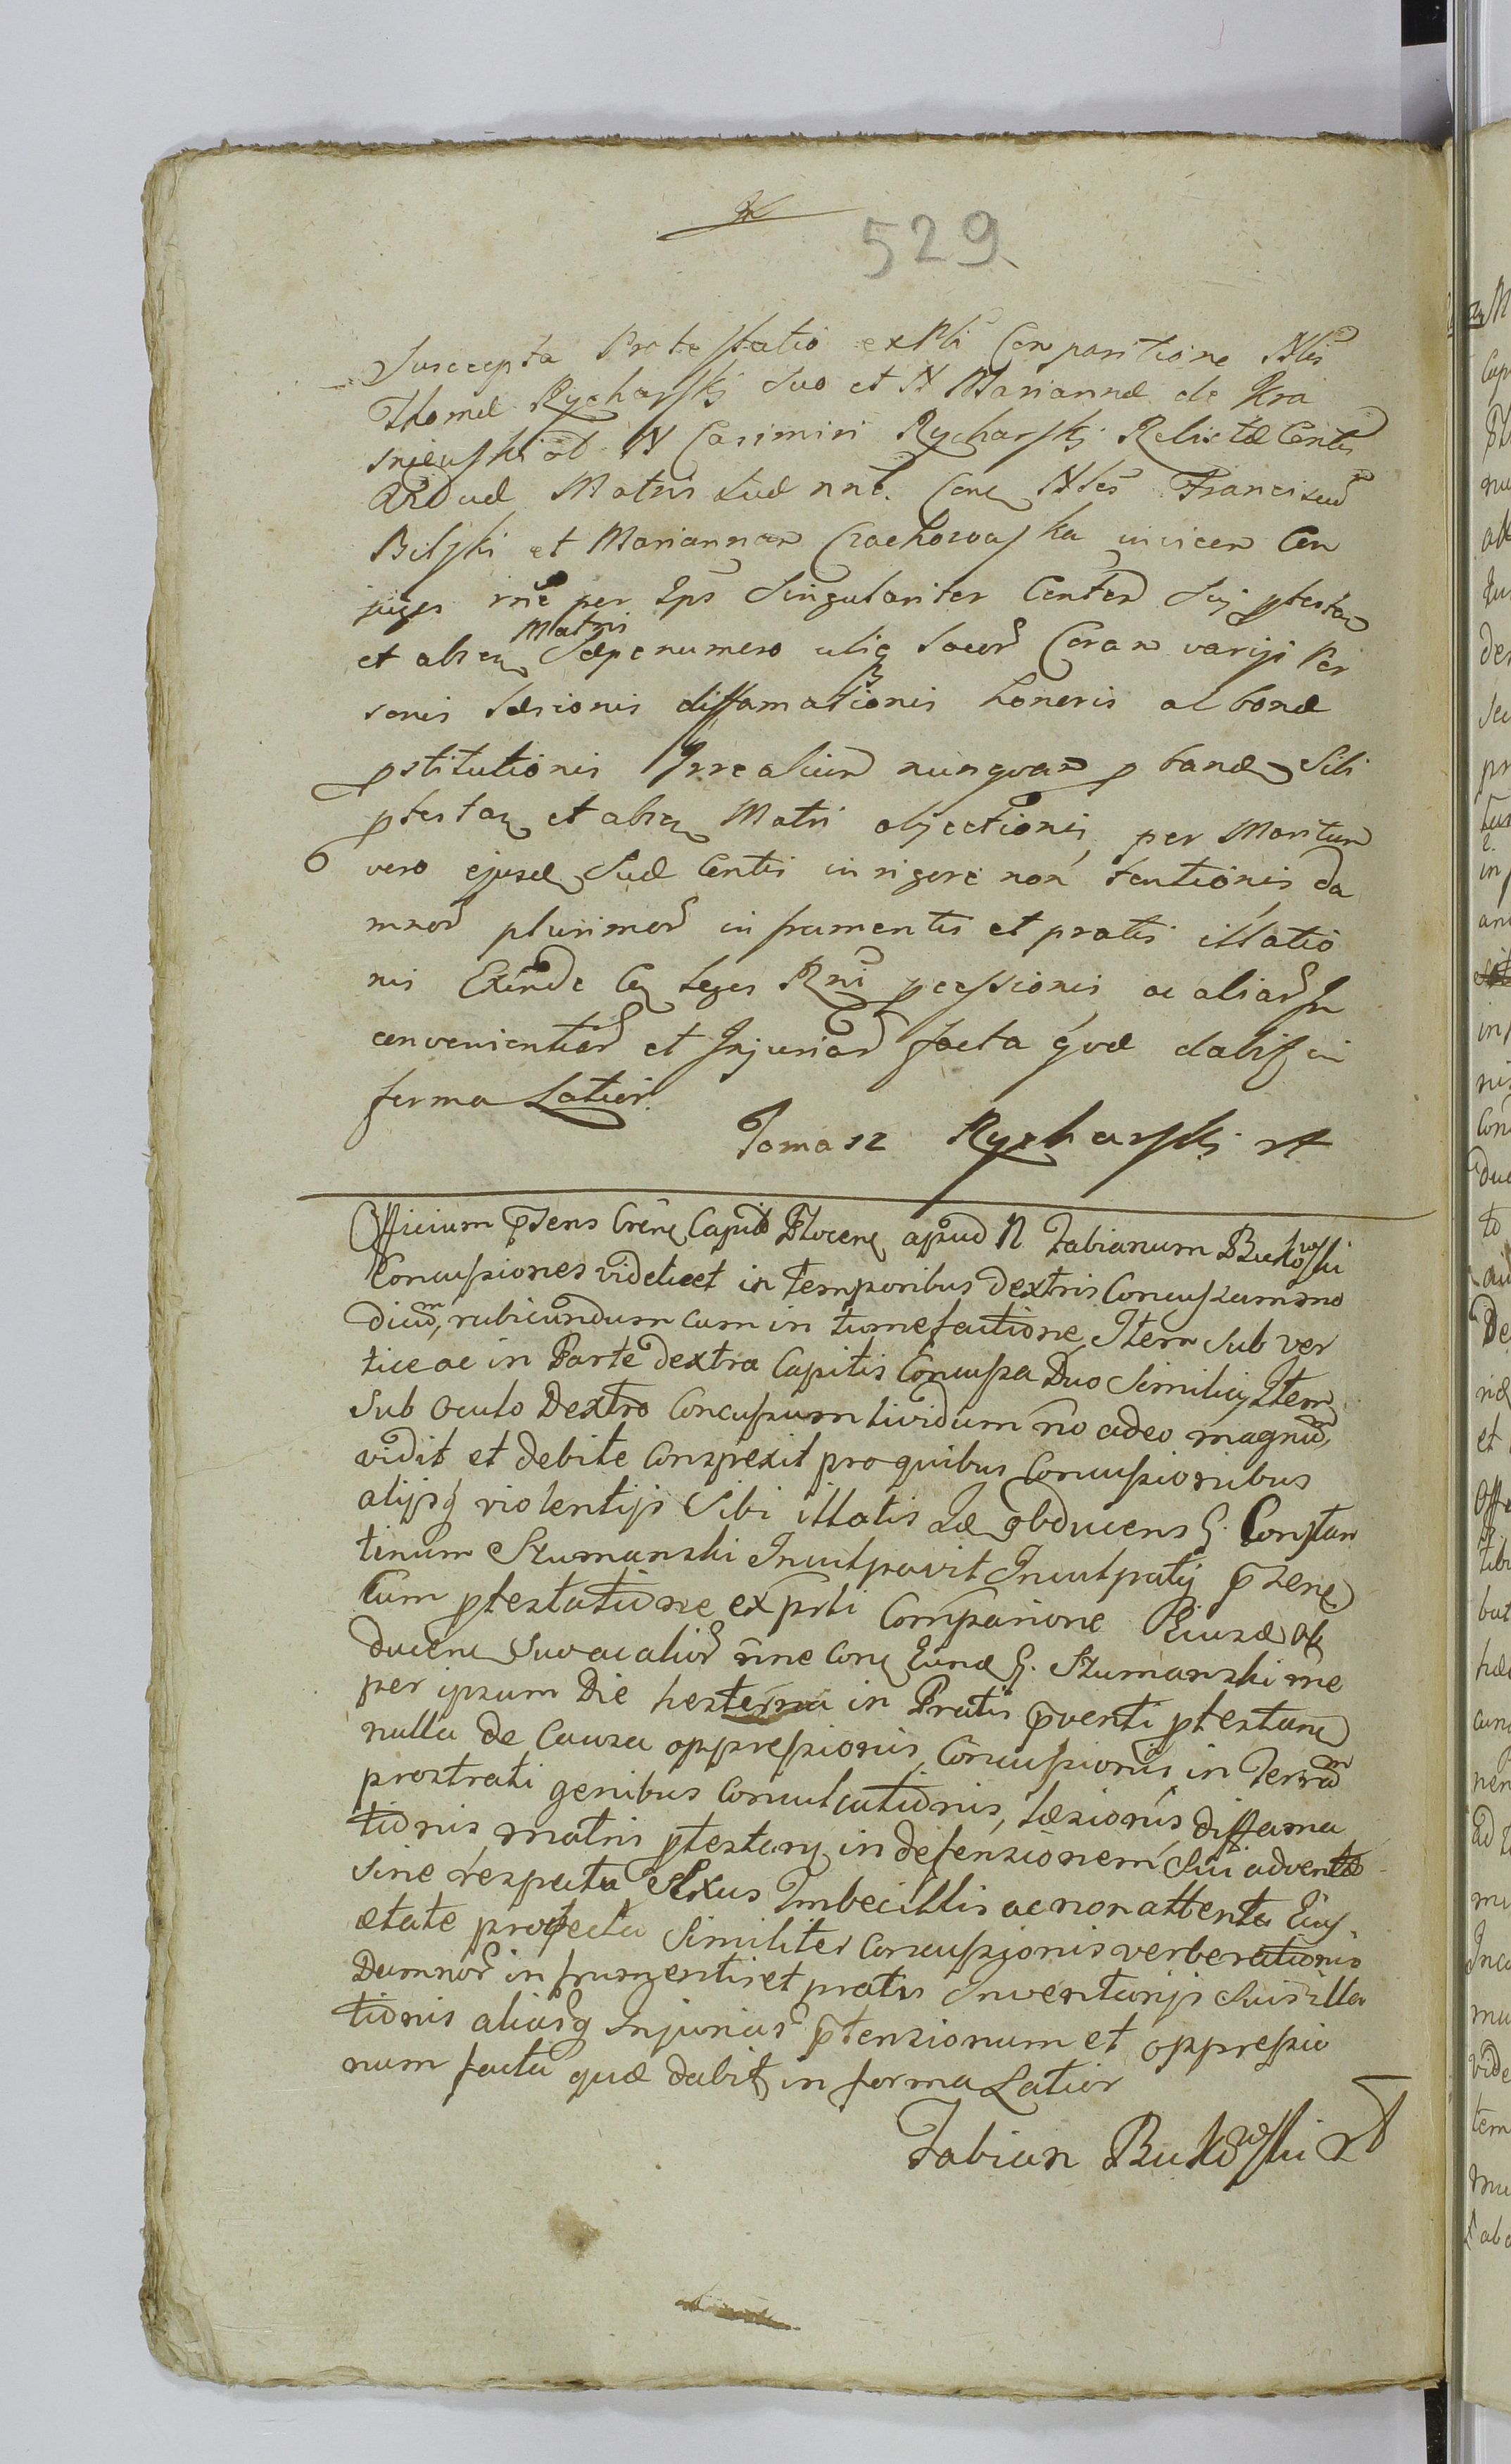 529
Suscepta Protestatio ex Pli Comparitione Nlis
Thomæ Rycharski Suo et N Mariannæ de Kra
snjewski N Casimiri Rycharski Relictæ Contis
Viduæ Matris Suæ nne. Con Nles Franciscum
Bilski et Mariannam Czachowska invicem Con
juges rne per Ips Singulariter Contem Suj ptestan
et absen Matris Sæpenumero ubiq locor Coram varijs Per
sonis læsionis diffamationis honoris al bonæ
pstitutionis Irrealium nunquam pband Sibi
ptestan et absen Matri objectionis, per Maritum
6 vero ejusd Suæ Contis in rigore non tentionis da
mnor plurimor in frumentis et pratis illatio
nis Exinde Con leges Rni pcessionis, ac aliar In
convenientiar et Injuriar facta quæ dabit in
forma Latior.
Tomasz Rycharski
Officium Pdens Crense Capit Plocen apud N Fabianum Bukowski
Concussiones videlicet in Temporibus dextris Concussum mo
dicum, rubicundum cum in tumefactione, Item Sub ver
tice ac in Parte dextra Capitis Concussa Duo Similia, Item
Sub oculo Dextro Concussum lividum no adeo magnum
vidit et debite Conspexit pro quibus Concussionibus
alijsq violentijs Sibi illatis Idæ obducens G. Constan
tinum Szumanski Inculpavit Inculpatq
Cum ptestatione ex psti Comparione Ejusd Ob
ducen Suo ac alior nne Con Eund G. Szumanski rne
per ipsum Die hesterna in Pratis pventi ptestan
nulla de Causa oppressionis, Concussionis in Terram
prostrati genibus Conculcationis, læsionis, diffama
tionis, matris ptestan, in defensionem Sui adventæ
Sine respectu Sexus Imbecillis ac non attenta Eius
ætate provecta Similiter Concussionis verberationis
Damnor in frumentis et pratis Inventarijs Suis illa
tionis aliarq Injuriar Ptensionum et oppressio
num facta quæ dabit in forma Latior
Fabian Bukowski